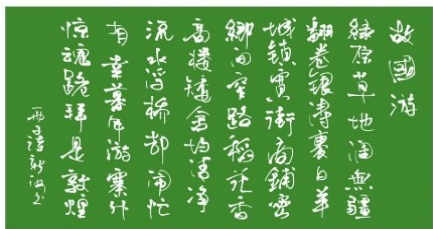 故國游
綠原草地涸無疆
翻卷銀濤裏白羊
城鎮實街商鋪密
鄉間窄路稻花香
高樓矮舍均清净
流水浮橋却闹忙
有幸暮年游塞外
惊魂跪拜是敦煌